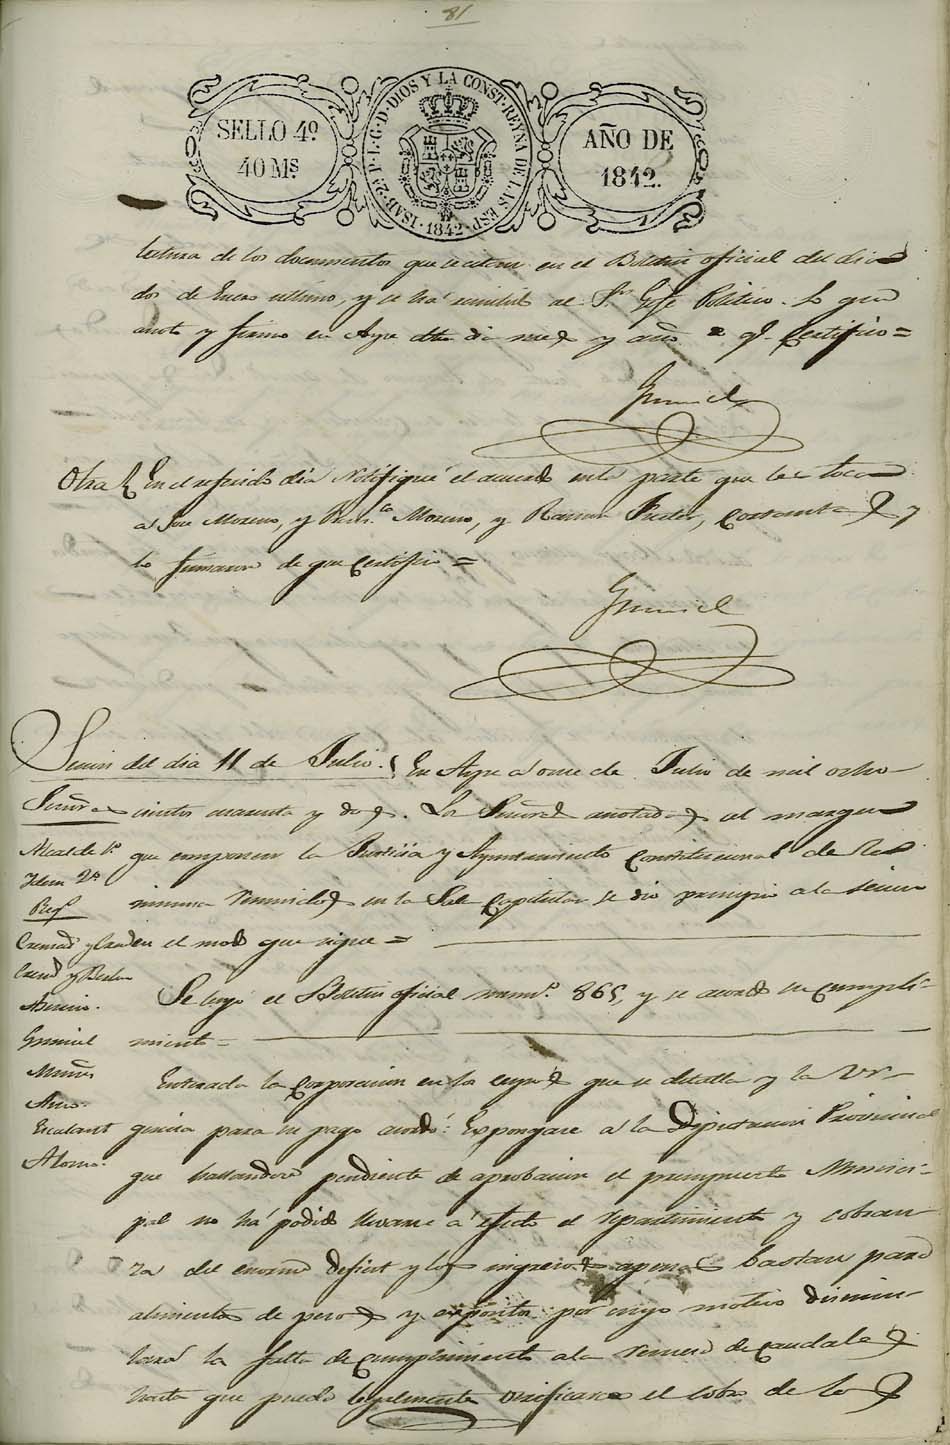 81
SELLO 4º
40 Ms
ISAB. 2ª P. L. G. D. DIOS Y LA CONST. REYNA DE LAS ESP.
1842
AÑO DE
1842.
lectura de los documentos que se citan en el Boletin oficial del dia
dos de Enero ultimo, y se há remitido al Sr. Gefe Politico. Lo que
anoto y firmo en Ayra dho dia mes y año de q.e Certifico=
Gumiel
Otra En el referido dia Notifiqué el acuerdo en la parte que les toca
a José Moreno, y Fran.co Moreno, y Ramon Pastor, y
lo firmaron de que Certifico=
Gumiel
Sesion del dia 11 de Julio. En Ayra á once de Julio de mil ocho-
Señores cientos cuarenta y dos. Los Señores anotados al margen
Alcalde 1º que componen la Justicia y Ayuntamiento Constitucional de la
Idem 2º
Reg.s misma reunidos en la Sala Capitular se dio principio a la sesion
en el modo que sigue=
Se leyó el Boletin oficial num.º 865, y se acordó su cumpli-
Gumiel miento=
Muñoz Enterada la Corporacion en los que se detalla y la ur-
Escalant gencia para su pago acordó: Espongase á la Diputacion Provincial
Alonso. que hallandose pendiente de aprobacion el presupuesto Munici-
pal no há podido llevarse á efecto el repartimiento y cobran-
za del enorme deficit y los ingresos apenas bastan para
alimentos de presos y expositos por cuyo motivo disimu-
lará la falta de Cumplimiento a la remesa de Caudales
hasta que pueda legalmente verificarse el cobro de los